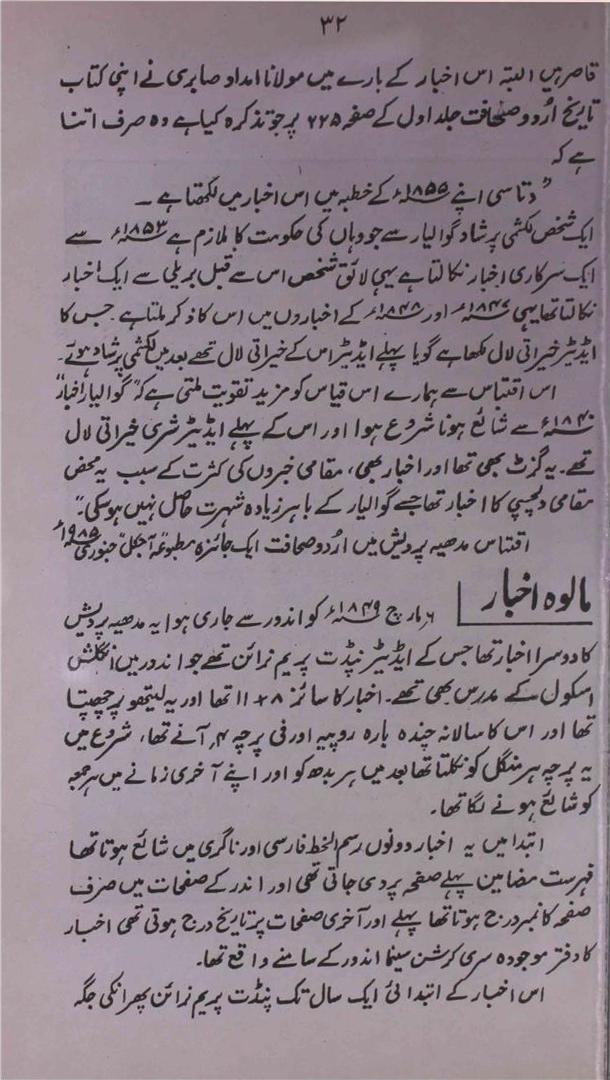 ۳۲
قاصر ہیں البتہ اس اخبار کے بارے میں مولانا امداد صابری نے اپنی کتاب
تاریخ اُردو صحافت جلد اول کے صفحہ ۲۲۵ پر جو تذکرہ کیا ہے وہ صرف اتنا
ہے کہ
"دتاسی اپنے ۱۸۵۵ء کے خطبہ میں اس اخبار میں لکھتا ہے ۔
ایک شخص لکشمی پرشاد گوالیار سے جو وہاں کی حکومت کا ملازم ہے ۱۸۵۳ء سے
ایک سرکاری اخبار نکالتا ہے یہی لائق شخص اس سے قبل بریلی سے ایک اخبار
نکالتا تھا یہی ۱۸۴۷ء اور ۱۸۴۸ء کے اخباروں میں اس کا ذکر ملتا ہے جس کا
ایڈیٹر خیراتی لال لکھا ہے گویا پہلے ایڈیٹر اس کے خیراتی لال تھے بعد میں لکشمی پرشاد ہوئے۔
اس اقتباس سے ہمارے اس قیاس کو مزید تقویت ملتی ہے کہ "گوالیار اخبار"
۱۸۴۰ء سے شائع ہونا شروع ہوا اور اس کے پہلے ایڈیٹر شری خیراتی لال
تھے۔ یہ گزٹ بھی تھا اور اخبار بھی، مقامی خبروں کی کثرت کے سبب یہ محض
مقامی دلچسپی کا اخبار تھا جسے گوالیار کے باہر زیادہ شہرت حاصل نہیں ہو سکی۔"
اقتباس مدھیہ پردیش میں اُردو صحافت ایک جائزہ مطبوعہ آجکل جنوری ۱۹۸۵ء
مالوہ اخبار
۶ مارچ ۱۸۴۹ء کو اندور سے جاری ہوا یہ مدھیہ پردیش
کا دوسرا اخبار تھا جس کے ایڈیٹر پنڈت پریم نرائن تھے جو اندور میں انگلش
اسکول کے مدرس بھی تھے۔ اخبار کا سائز ۸×۱۱ تھا اور یہ لیتھو پر چھپتا
تھا اور اس کا سالانہ چندہ بارہ روپیہ اور فی پرچہ ۴ر آنے تھا، شروع میں
یہ پرچہ ہر منگل کو نکلتا تھا بعد میں ہر بدھ کو اور اپنے آخری زمانے میں ہر جمعہ
کو شائع ہونے لگا تھا۔
ابتدا میں یہ اخبار دونوں رسم الخط فارسی اور ناگری میں شائع ہوتا تھا
فہرست مضامین پہلے صفحہ پر دی جاتی تھی اور اندر کے صفحات میں صرف
صفحہ کا نمبر درج ہوتا تھا پہلے اور آخری صفحات پر تاریخ درج ہوتی تھی اخبار
کا دفتر موجودہ سری کرشن سینما اندور کے سامنے واقع تھا۔
اس اخبار کے ابتدائی ایک سال تک پنڈت پریم نرائن پھر انکی جگہ